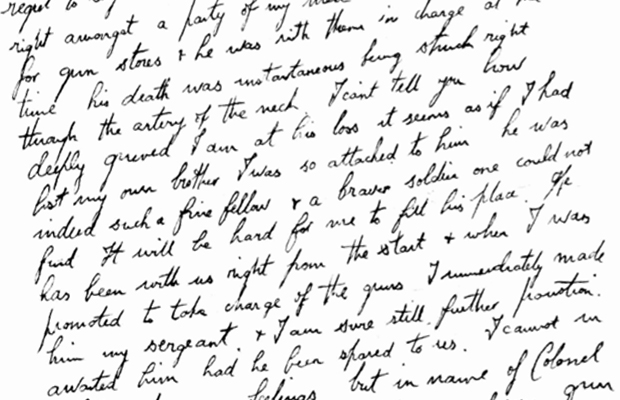 regret to
right amongst a party of my men
for gun stores & he was with them in charge at the
time his death was instantaneous being struck right
through the artery of the neck I cant tell you how
deeply grieved I am at his loss it seems as if I had
lost my own brother I was so attached to him he was
indeed such a fine fellow & a braver soldier one could not
find It will be hard for me to fill his place. He
has been with us right from the start & when I was
promoted to take charge of the guns I immediately made
him my sergeant. & I am sure still further promotion.
awaited him had he been spared to us. I cannot in
feelings but in name of Colonel
gun